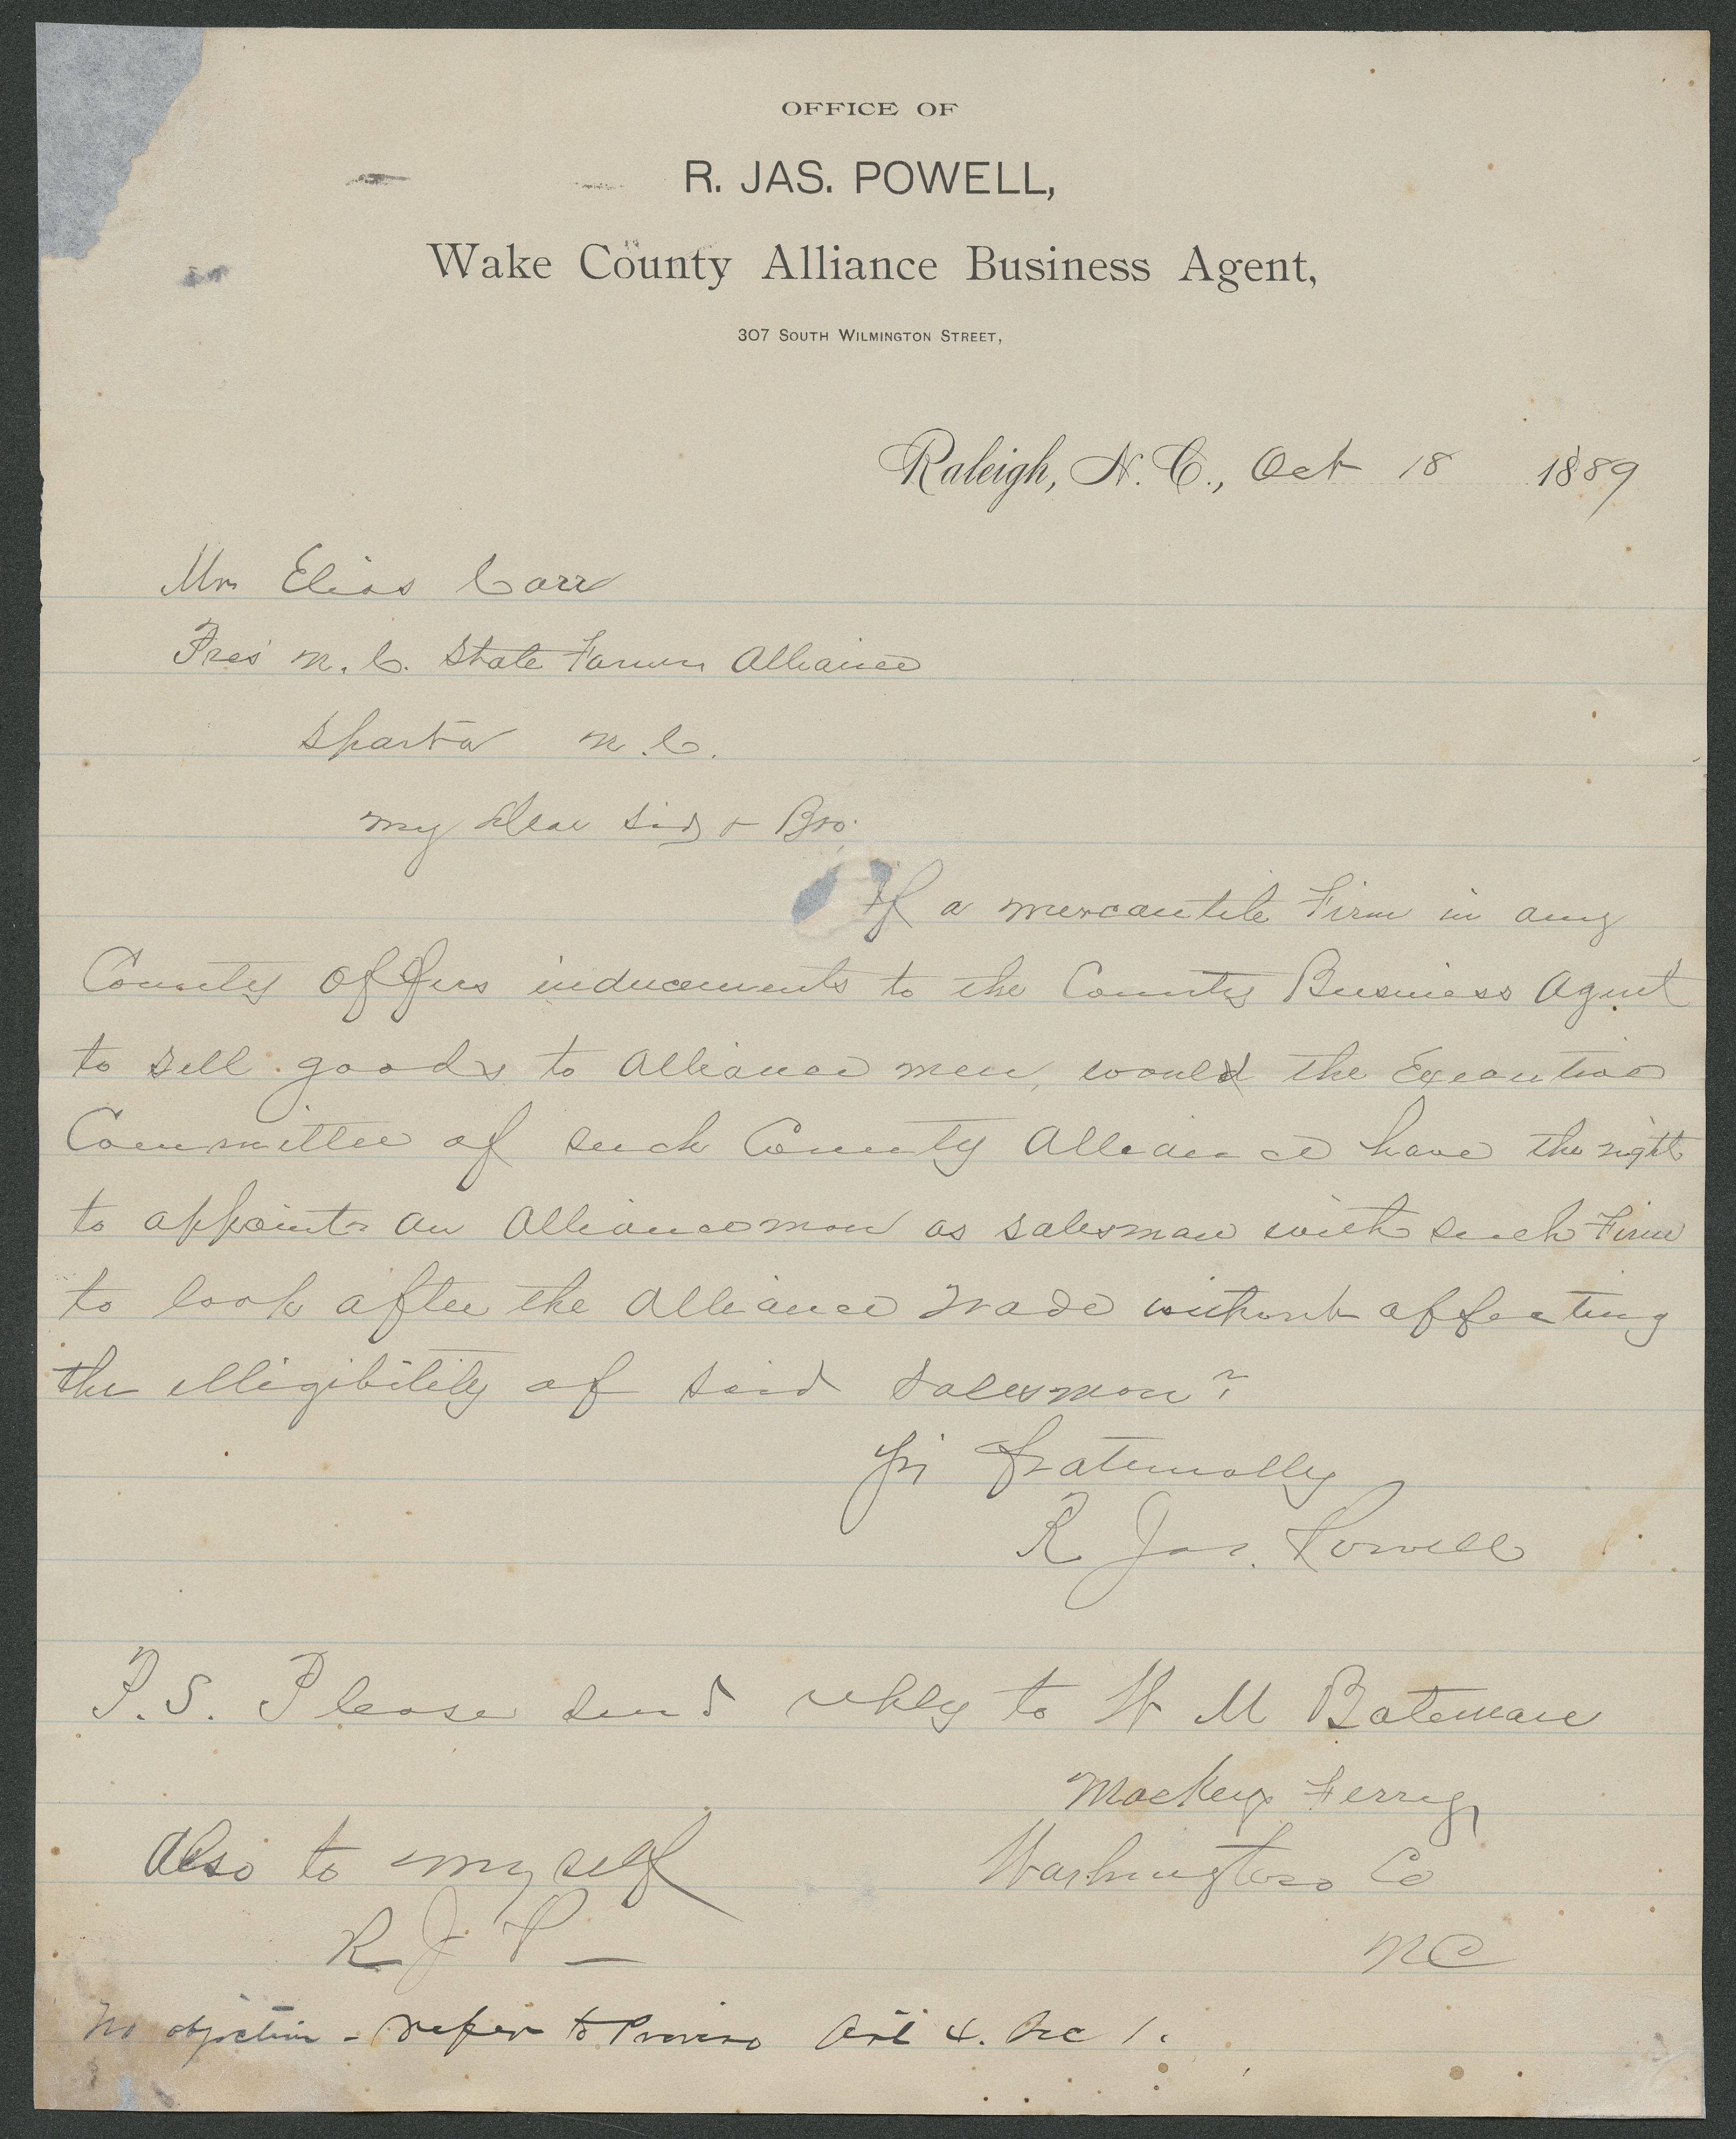 OFFICE OF
R. JAS. POWELL,
Wake County Alliance Business Agent,
307 SOUTH WILMINGTON STREET,
Raleigh, N. C., Oct 18 1889
Mr Elias Carr
Pres N. C. State Farmers Alliance
Sparta N. C.
My Dear Sir & Bro.
If a mercantile Firm in any
County offers inducements to the County Business Agent
to sell goods to Alliance men, would the Executive
Committee of such County Alliance have the right
to appoint an Allianceman as salesman with such Firm
to look after the Alliance Trade without affecting
the elligibility of said salesman?
Yrs fraternally
R Jas. Powell
P.S. Please send reply to W M Bateman
Mackeys Ferry
Also to myself Washington Co
R J P — NC
No objection - refer to Proviso Art 4. Sec 1.